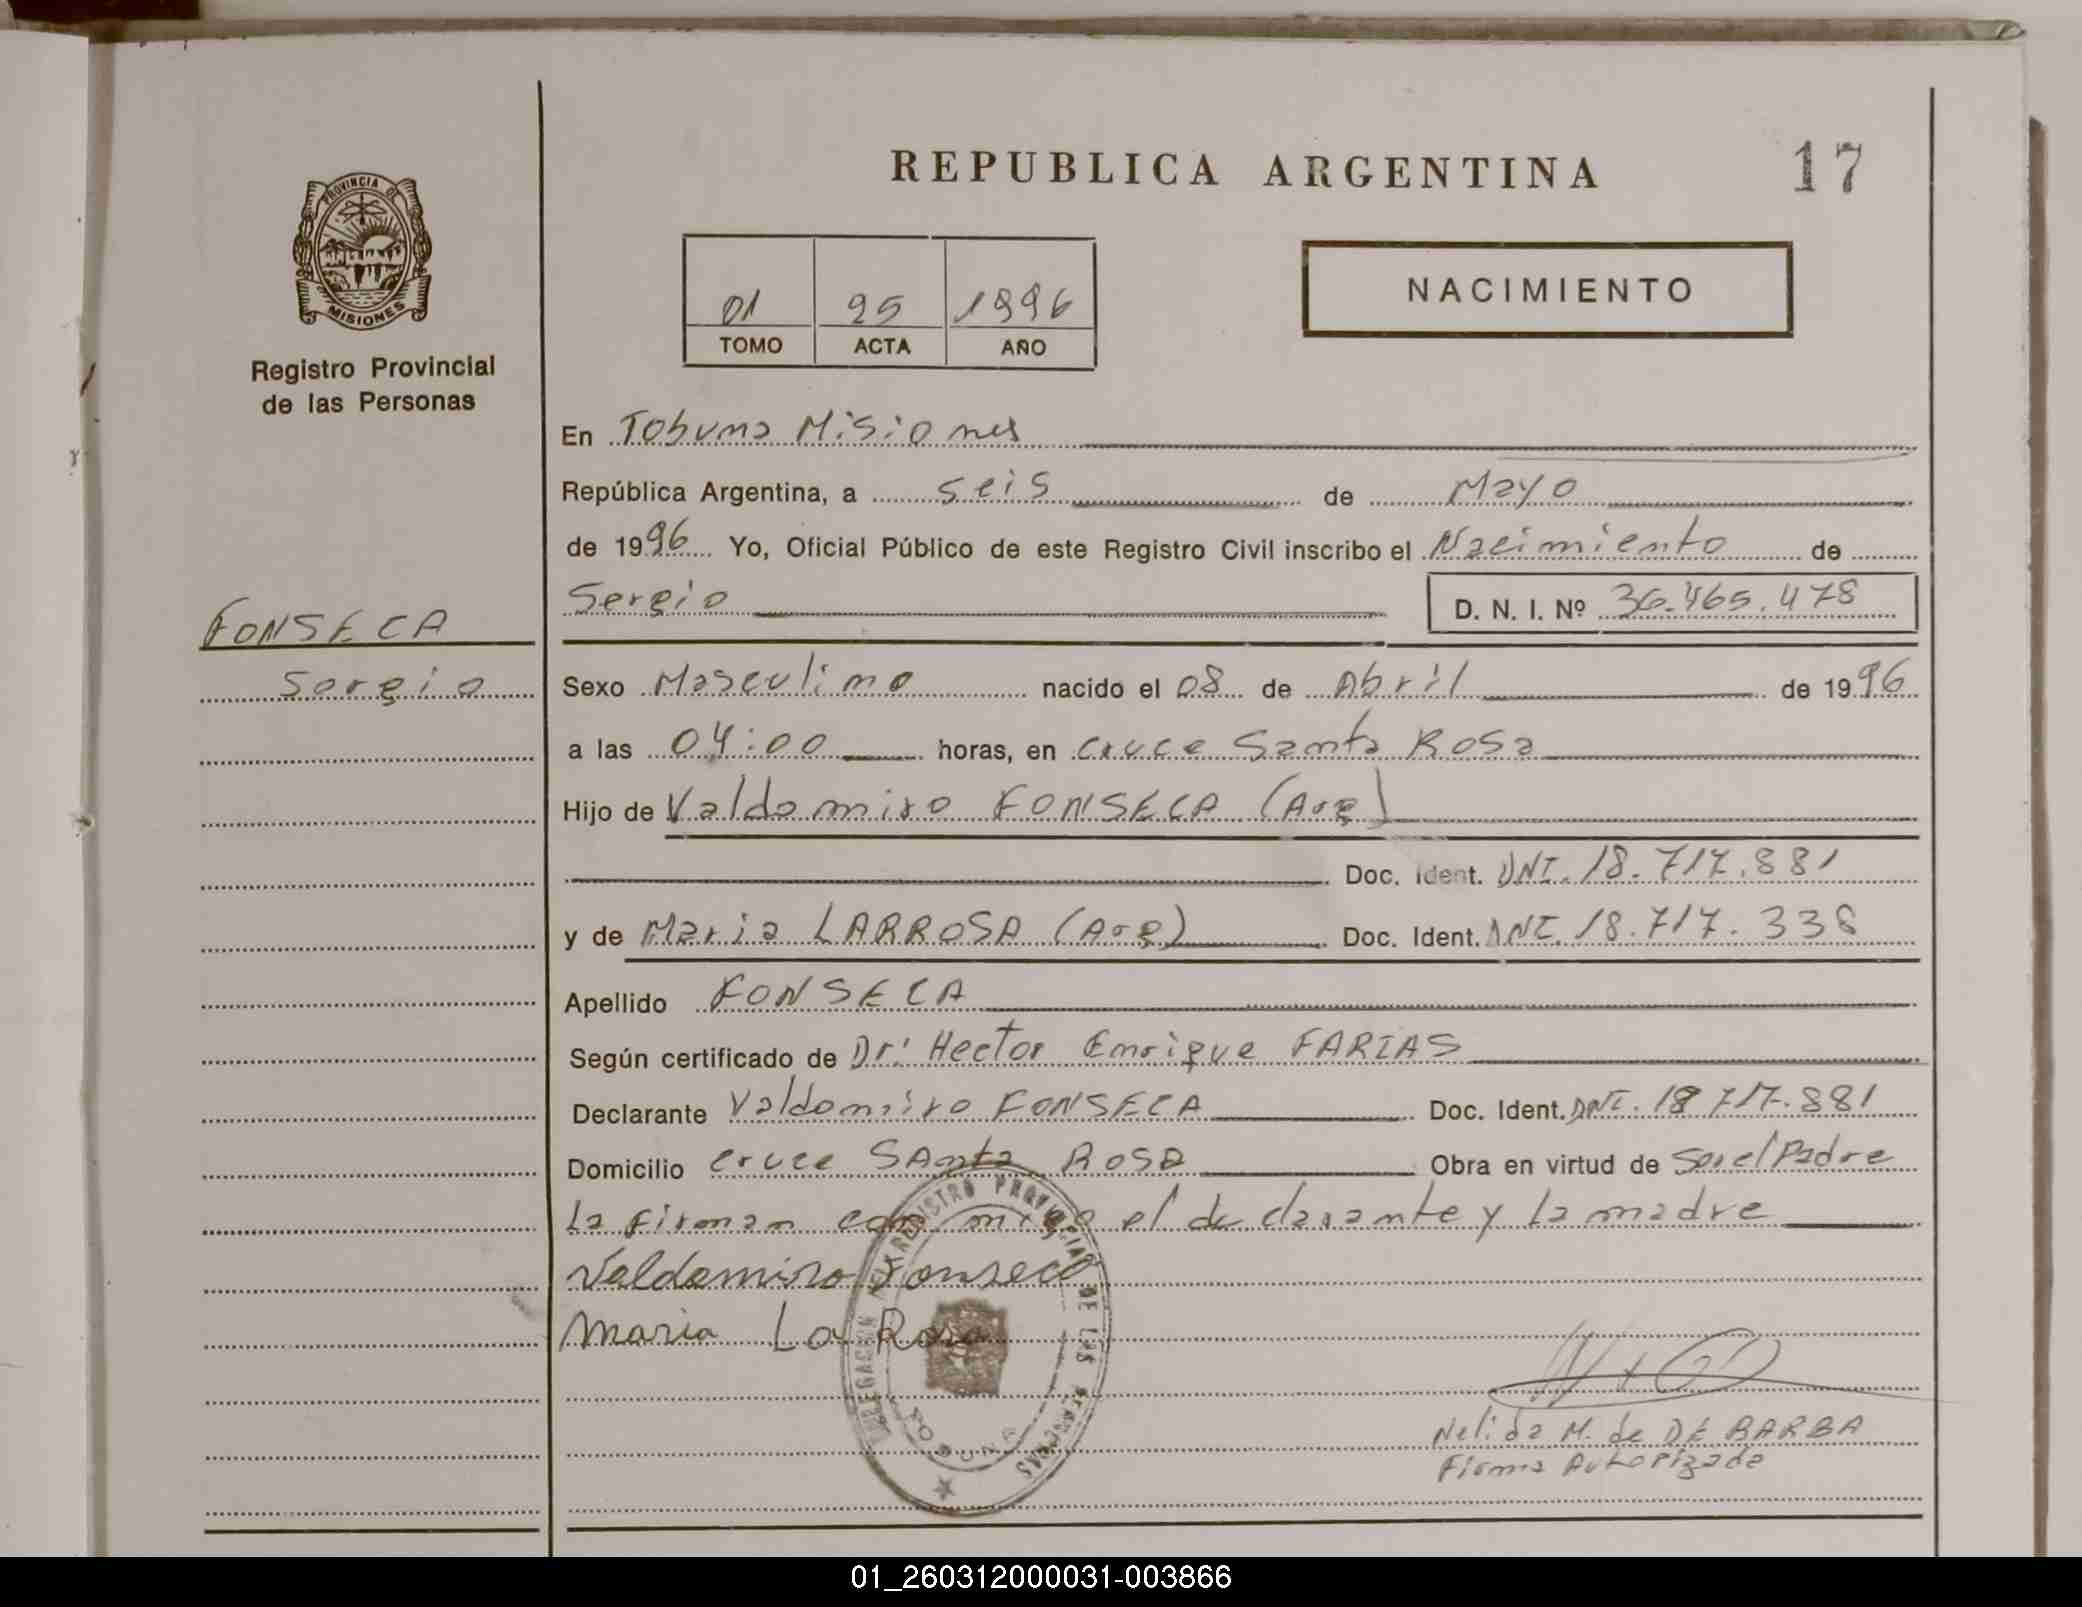 REPUBLICA ARGENTINA
17
PROVINCIA DE
MISIONES
Registro Provincial
de las Personas
01 25 1996
TOMO ACTA AÑO
NACIMIENTO
En Tobuna Misiones
República Argentina, a seis de Mayo
de 1996 Yo, Oficial Público de este Registro Civil inscribo el Nacimiento de
Sergio D. N. I. Nº 36.465.478
FONSECA
Sergio
Sexo Masculino nacido el 08 de Abril de 1996
a las 04:00 horas, en cruce Santa Rosa
Hijo de Valdomiro FONSECA (Arg)
Doc. Ident. DNI. 18.717.881
y de Maria LARROSA (Arg) Doc. Ident. DNI. 18.717.338
Apellido FONSECA
Según certificado de Dr: Hector Enrique FARIAS
Declarante Valdomiro FONSECA Doc. Ident. DNI. 18 717.881
Domicilio cruce SAnta ROSA Obra en virtud de Ser el Padre
La firman con migo el declarante y la madre
Valdomiro Fonseca
Maria La Rosa
REGISTRO PROVINCIAL DE LAS PERSONAS
Nelida M. de DE BARBA
Firma Autorizada
01_260312000031-003866